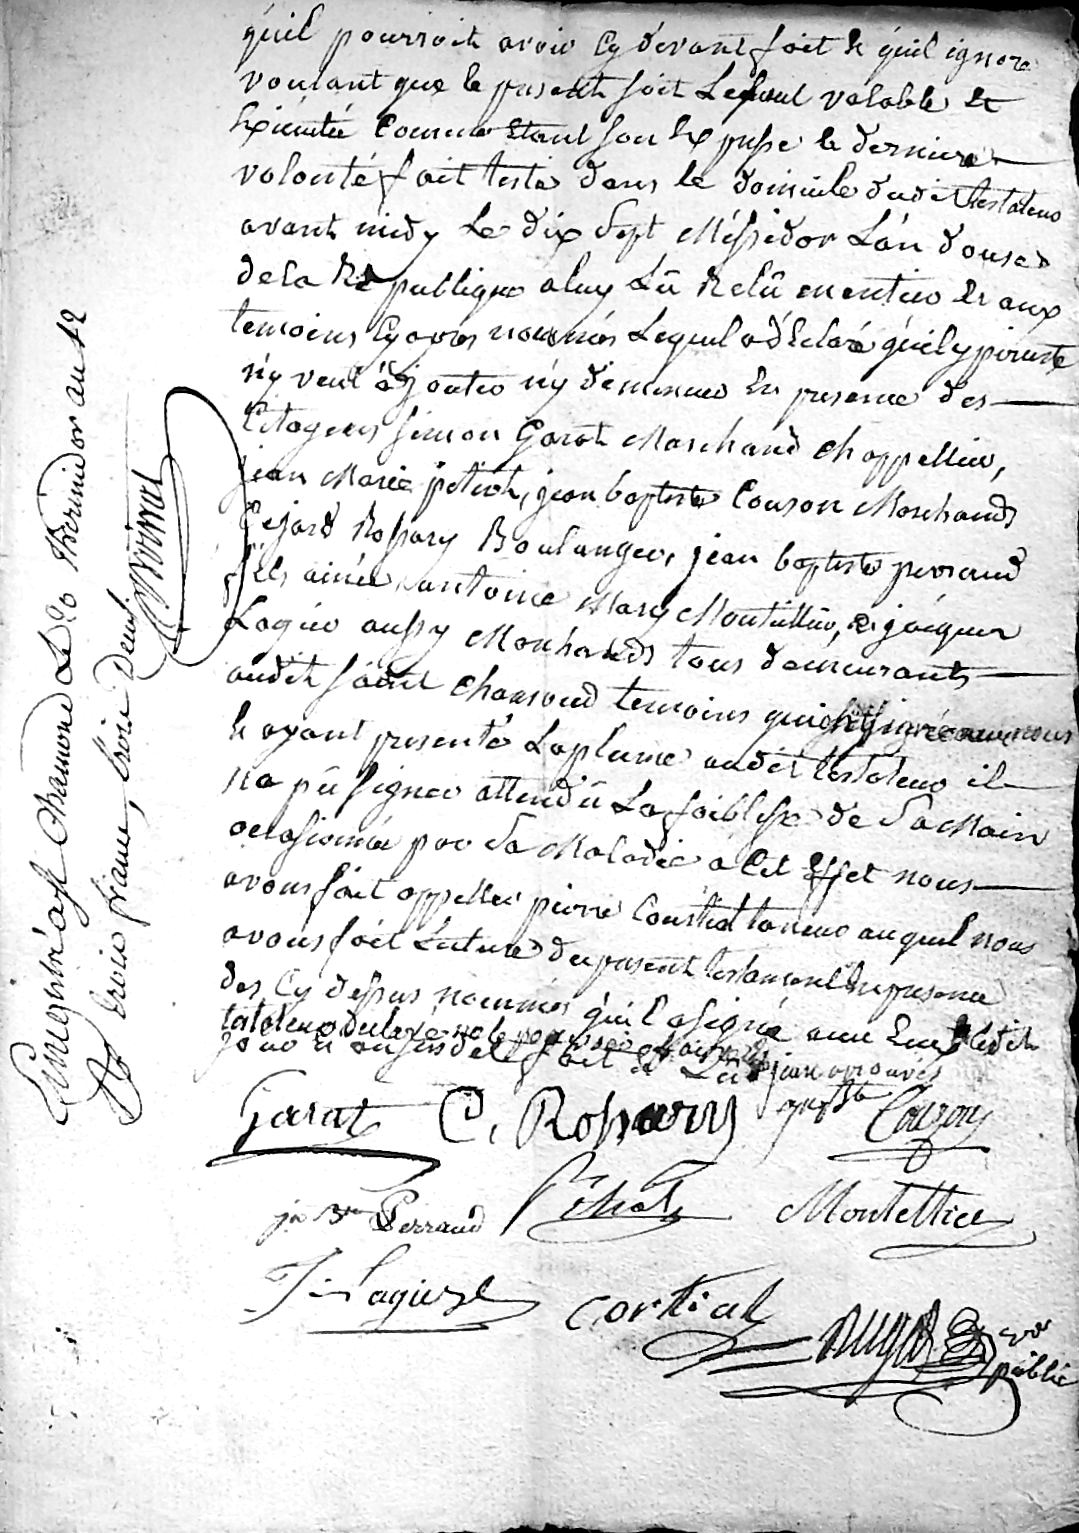 qu'il pourroit avoir cy devant fait & qu'il ignore
voulant que le present soit le seul valable et
Exécutée Comme Etant son Expresse & derniere
volonté fait testé dans le domicile dudit testateur
avant midy Le dix Sept Messidor L'an douse
de la Republique a luy Lû Relû en entier & aux
temoins Cy apres nommés Lequel a déclaré qu'il y persiste
n'y veut ajouter n'y diminuer En presence des
Citoyens Simon Garat Marchand Chappellier,
jean Marie pétiot, jean baptiste Couzon Marchands
Rossary Boulanger, jean baptiste perraud
fils ainée, antoine Mary Montellier, & jacques
Lagier aussy Marchands tous demeurants
audit saint Chamond temoins qui ont signé avec nous
& ayant presenté La plume audit testateur il
n'a pû signer attendû La foiblesse de Sa Main
occasionnée par Sa Maladie a Cet Effet nous
avons fait appeller pierre Cortial taneur auquel nous
avons fait Lecture du present testament En presence
des Cy dessus nommés qu'il a signé avec Eux Ledit
testateur declaré ne le
Garat C. Rossary Couzon
jn Bte Perraud Pétiot Montellier
J. Lagier Cortial
public
Enregistré a St Chamond Le 20 thermidor an 12
R trois francs, trois deci.